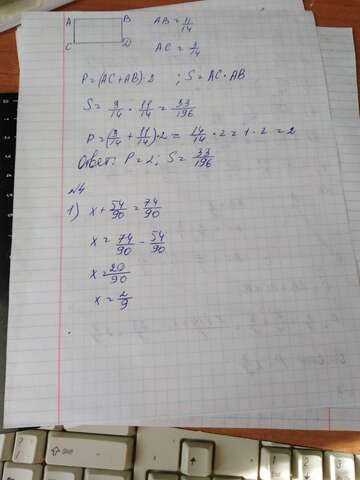 A B AB = 11/14
C D AC = 3/14
P = (AC + AB) · 2 ; S = AC · AB
S = 3/14 · 11/14 = 33/196
P = (3/14 + 11/14) · 2 = 14/14 · 2 = 1 · 2 = 2
Ответ: P = 2; S = 33/196
№4
1) x + 54/90 = 74/90
x = 74/90 - 54/90
x = 20/90
x = 2/9